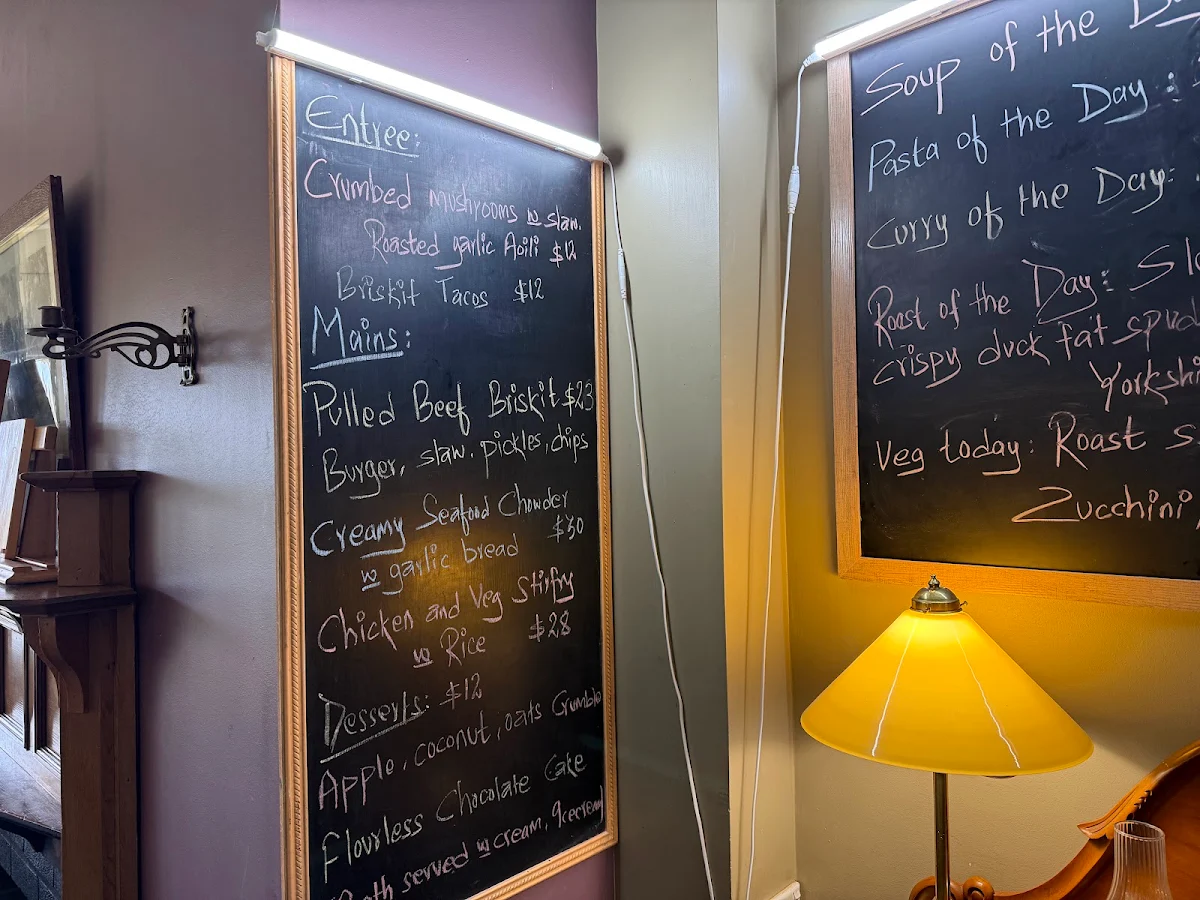 Entree:
Crumbed mushrooms w slaw.
Roasted garlic Aoili $12
Briskit Tacos $12
Mains:
Pulled Beef Briskit $23
Burger, slaw, pickles, chips
Creamy Seafood Chowder
$30
w garlic bread
Chicken and Veg Stirfry
w Rice $28
Desserts: $12
Apple, coconut, oats Crumble
Flourless Chocolate Cake
Both served w cream, icecream
Soup of the
Pasta of the Day:
Curry of the Day:
Roast of the Day:
crispy duck fat
Veg today: Roast
Zucchini